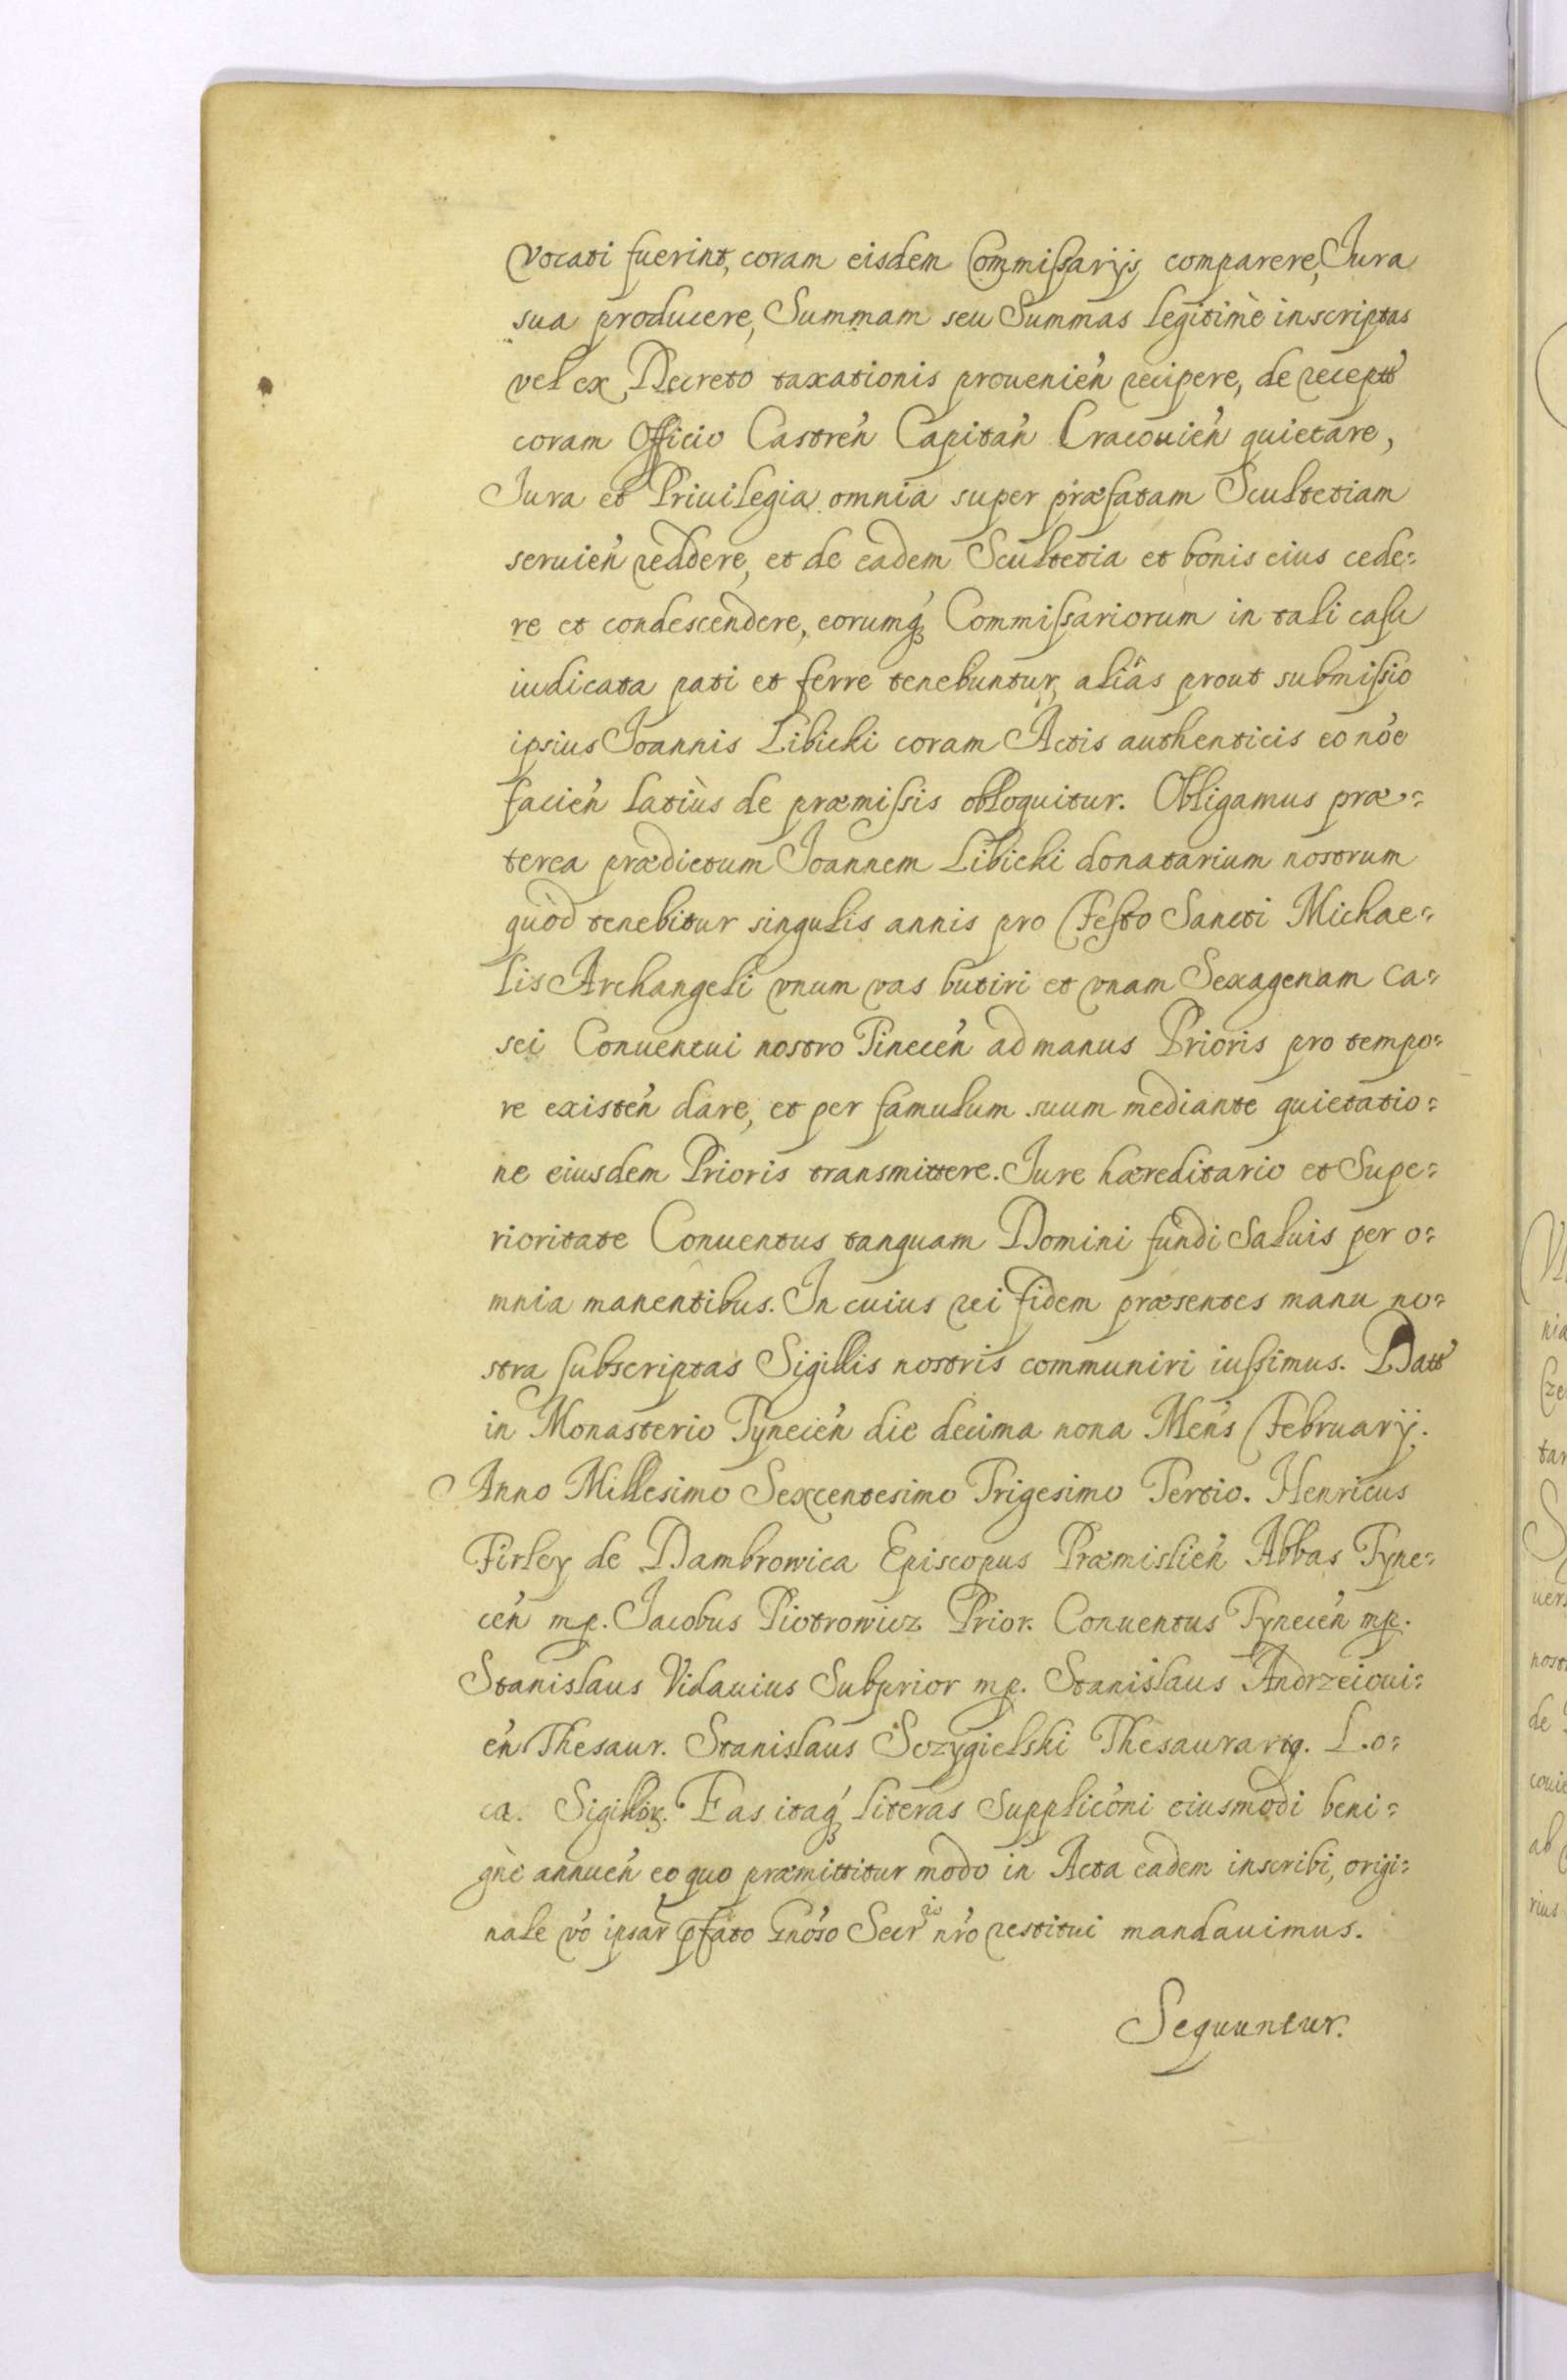 vocati fuerint, coram eisdem Commissarijs comparere, Jura
sua producere, Summam seu Summas legitimè inscriptas
vel ex Decreto taxationis prouenien̄ recipere, de receptt̄
coram Officio Castren̄ Capitan̄ Cracouien̄ quietare,
Jura et Priuilegia omnia super præfatam Scultetiam
seruien̄ reddere, et de eadem Scultetia et bonis eius cede=
re et condescendere, eorumq́ Commissariorum in tali casu
iudicata pati et ferre tenebuntur, aliâs prout submissio
ipsius Joannis Libicki coram Actis authenticis eo nōe
facien̄ latiùs de præmissis obloquitur. Obligamus præ=
terea prædictum Joannem Libicki donatarium nostrum
quòd tenebitur singulis annis pro Festo Sancti Michae=
lis Archangeli vnum vas butiri et vnam Sexagenam ca=
sei Conuentui nostro Tinecen̄ ad manus Prioris pro tempo=
re existen̄ dare, et per famulum suum mediante quietatio=
ne eiusdem Prioris transmittere. Jure hæreditario et Supe=
rioritate Conuentus tanquam Domini fundi Saluis per o=
mnia manentibus. In cuius rei fidem præsentes manu no=
stra subscriptas Sigillis nostris communiri iussimus. Datt̄
in Monasterio Tynecien̄ die decima nona Mens̄ Februarij.
Anno Millesimo Sexcentesimo Trigesimo Tertio. Henricus
Firley de Dambrowica Episcopus Præmislien̄ Abbas Tyne=
cen̄ mp. Jacobus Piotrowicz Prior. Conuentus Tynecen̄ mp.
Stanislaus Vidauius Subprior mp. Stanislaus Andrzeioui=
en̄ Thesaur. Stanislaus Sczygielski Thesaurariꝗ. L.o=
ca. Sigilloꝝ. Eas itaq́ literas Supplicōni eiusmodi beni=
gnè annuen̄ eo quo præmittitur modo in Acta eadem inscribi, origi=
nale vō ipsar̄ p̄fato Gnōso Secr̄io nr̄o restitui mandauimus.
Sequuntur.